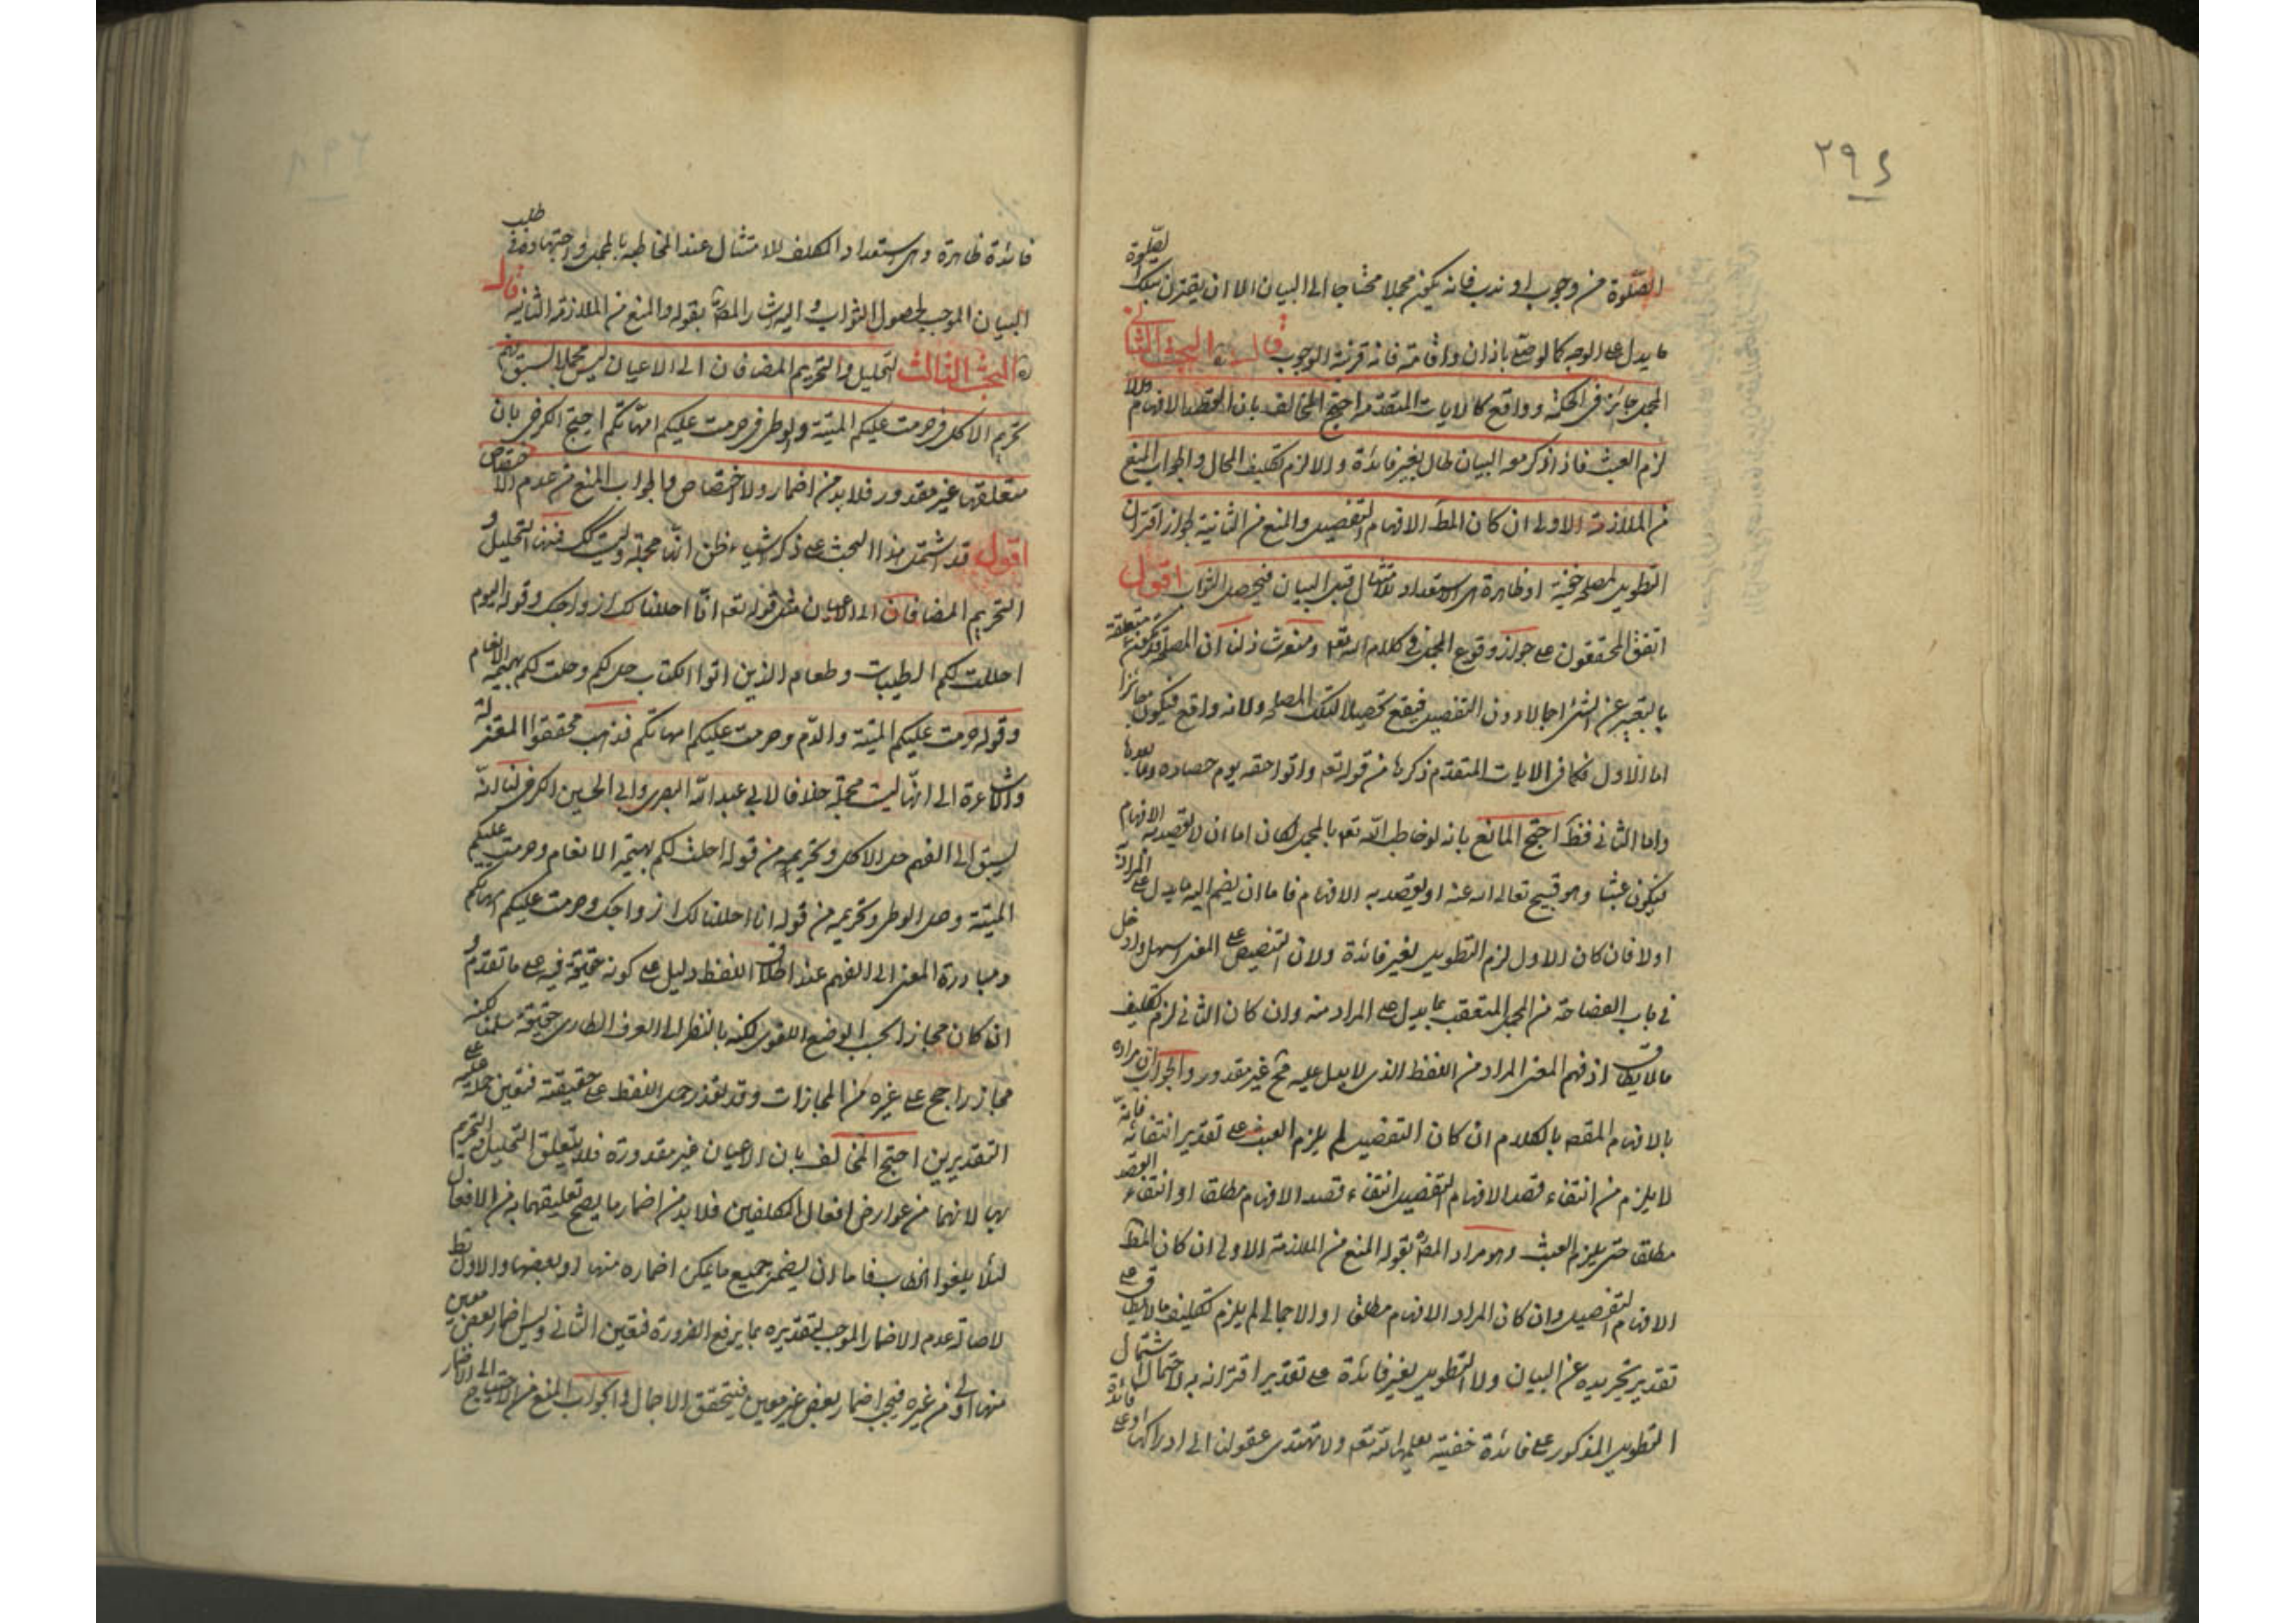 ٢٩٤
الصلوة من وجوب او ندب فانه يكون مجملا محتاجا الى البيان الا ان يقترن بتلك الصلوة
ما يدل على الوجه كما لو صلى باذان واقامة فانه قرينة الوجوب قال البحث الثاني
المجمل جائز في الحكمة وواقع كالايات المتقدمة احتج المخالف بان القصد الافهام والا
لزم العبث فاذا ذكر معه البيان طال بغير فائدة والا لزم تكليف المحال والجواب المنع
من الملازمة الاولى ان كان المط الافهام التفصيلى والمنع من الثانية لجواز اقتران
التطويل لمصلحة خفية او ظاهرة هى استعداد الامتثال قبل البيان فيحصل الثواب اقول
اتفق المحققون على جواز وقوع المجمل فى كلام الله تعه ومنعه شاذ لنا ان المصلحة قد تكون متعلقة
بالتعبير عن الشئ اجمالا دون التفصيل فيقع تحصيلا لتلك المصلحة ولانه واقع فيكون جائزا
اما الاول فكما فى الايات المتقدم ذكرها من قوله تعه واتوا حقه يوم حصاده وما بعدها
واما الثانى فظ احتج المانع بانه لو خاطب الله تعه بالمجمل لكان اما ان لا يقصد به الافهام
فيكون عبثا وهو قبيح تعالى الله عنه او يقصد به الافهام فاما ان يضم اليه ما يدل على المراد
اولا فان كان الاول لزم التطويل بغير فائدة ولان التنصيص على المعنى اسهل وادخل
فى باب الفصاحة من المجمل المتعقب بما يدل على المراد منه وان كان الثانى لزم تكليف
ما لا يطاق اذ فهم المعنى المراد من اللفظ الذى لا يدل عليه مح غير مقدور والجواب ان مراده
بالافهام المقصه بالكلام ان كان التفصيلى لم يلزم العبث على تقدير انتفائه فانه
لا يلزم من انتفاء قصد الافهام التفصيلى انتفاء قصد الافهام مطلقا او انتفاء القصد
مطلقا حتى يلزم العبث وهو مراد المص بقوله المنع من الملازمة الاولى ان كان المط
الافهام التفصيلى وان كان المراد الافهام مطلقا او الاجمالى لم يلزم تكليف ما لا يطاق على
تقدير تجريده عن البيان ولا التطويل بغير فائدة على تقدير اقترانه به لاحتمال اشتمال
التطويل المذكور على فائدة خفية يعلمها الله تعه ولا تهتدى عقولنا الى ادراكها او على فائدة
فائدة ظاهرة وهى استعداد المكلف للامتثال عند المخاطبة بالمجمل واجتهاده فى طلب
البيان الموجب لحصول الثواب واليه اشار المص بقوله والمنع من الملازمة الثانية قال
البحث الثالث التحليل والتحريم المضافان الى الاعيان ليس مجملا لسبق فهم
تحريم الاكل فى حرمت عليكم الميتة والوطى فى حرمت عليكم امهاتكم احتج الكرخى بان
متعلقها غير مقدور فلا بد من اضمار ولا اختصاص والجواب المنع من عدم الاختصاص
اقول قد اشتمل هذا البحث على ذكر اشياء ظن انها مجملة وليست كك فمنها التحليل و
التحريم المضافان الى الاعيان مثل قوله تعه انا احللنا لك ازواجك وقوله اليوم
احللت لكم الطيبات وطعام الذين اتوا الكتاب حل لكم وحلت لكم بهيمة الانعام
وقوله حرمت عليكم الميتة والدم وحرمت عليكم امهاتكم فذهب محققوا المعتزلة
والاشاعرة الى انها ليست مجملة خلافا لابى عبد الله البصرى وابى الحسين الكرخى لنا انه
يسبق الى الفهم حل الاكل وتحريمه من قوله احلت لكم بهيمة الانعام وحرمت عليكم
الميتة وحل الوطى وتحريمه من قوله انا احللنا لك ازواجك وحرمت عليكم امهاتكم
ومبادرة المعنى الى الفهم عند اطلاق اللفظ دليل على كونه حقيقة فيه على ما تقدم و
ان كان مجازا بحسب الوضع اللغوى لكنه بالنظر الى العرف الطارى حقيقة سلمنا لكنه
مجاز راجح على غيره من المجازات وقد تعذر حمل اللفظ على حقيقته فتعين حمله عليه على
التقديرين احتج المخالف بان الاعيان غير مقدورة فلا يتعلق التحليل والتحريم
بها لانهما من عوارض افعال المكلفين فلا بد من اضمار ما يصح تعليقهما به من الافعال
لئلا يلغوا الخطاب فاما ان يضمر جميع ما يمكن اضماره منها او بعضها والاول بط
لاصالة عدم الاضمار الموجب لتقديره بما يرفع الضرورة فتعين الثانى وليس اضمار بعض معين
منها اولى من غيره فيجب اضمار بعض غير معين فيتحقق الاجمال والجواب المنع من الاحتياج الى الاضمار